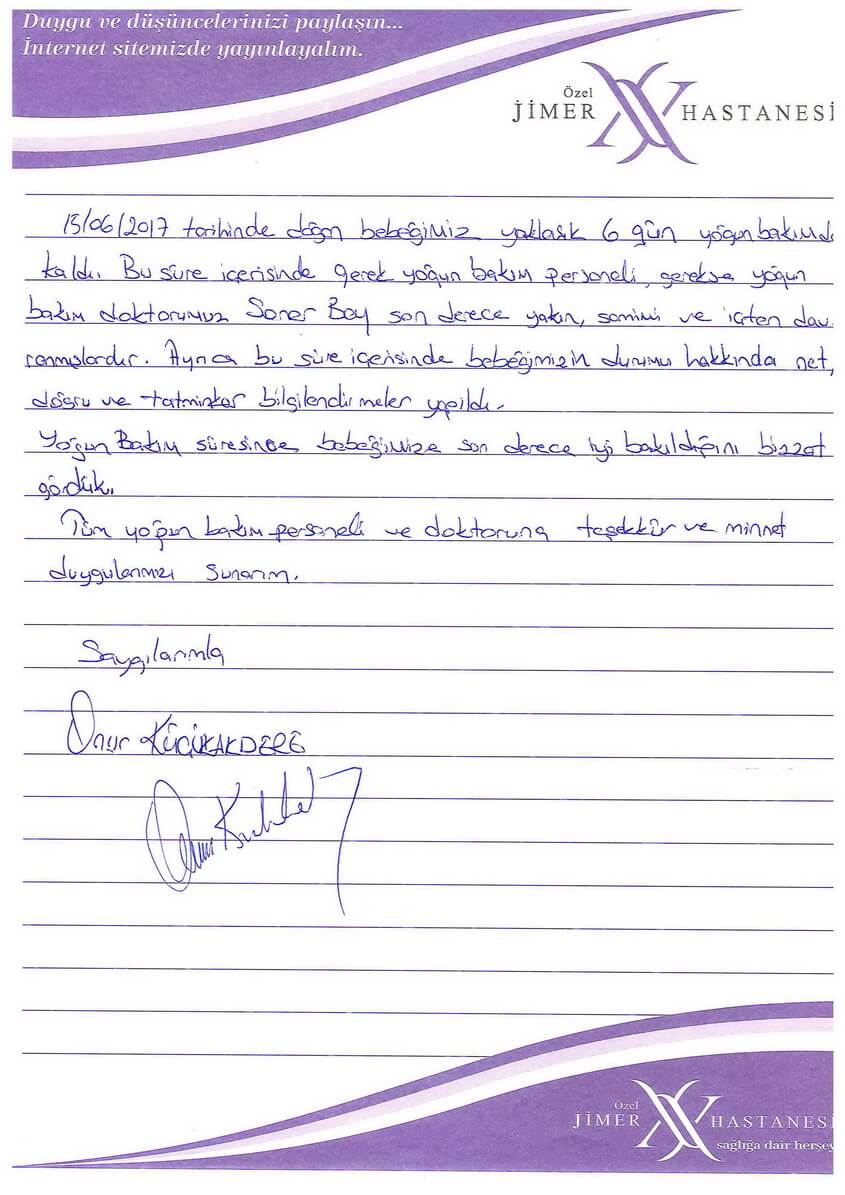 Duygu ve düşüncelerinizi paylaşın...
İnternet sitemizde yayınlayalım.
Özel
JİMER HASTANESİ
13/06/2017 tarihinde doğan bebeğimiz yaklaşık 6 gün yoğun bakımda
kaldı. Bu süre içerisinde gerek yoğun bakım personeli, gerekse yoğun
bakım doktorumuz Soner Bey son derece yakın, samimi ve içten dav
ranmışlardır. Ayrıca bu süre içerisinde bebeğimizin durumu hakkında net,
doğru ve tatminkar bilgilendirmeler yapıldı.
Yoğun Bakım süresince bebeğimize son derece iyi bakıldığını bizzat
gördük.
Tüm yoğun bakım personeli ve doktoruna teşekkür ve minnet
duygularımızı sunarım.
Saygılarımla
Onur KÜÇÜKAKDERE
Özel
JİMER HASTANESİ
sağlığa dair herşey